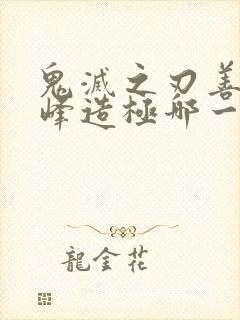 鬼滅之刃善
峰造極那一
龍金花